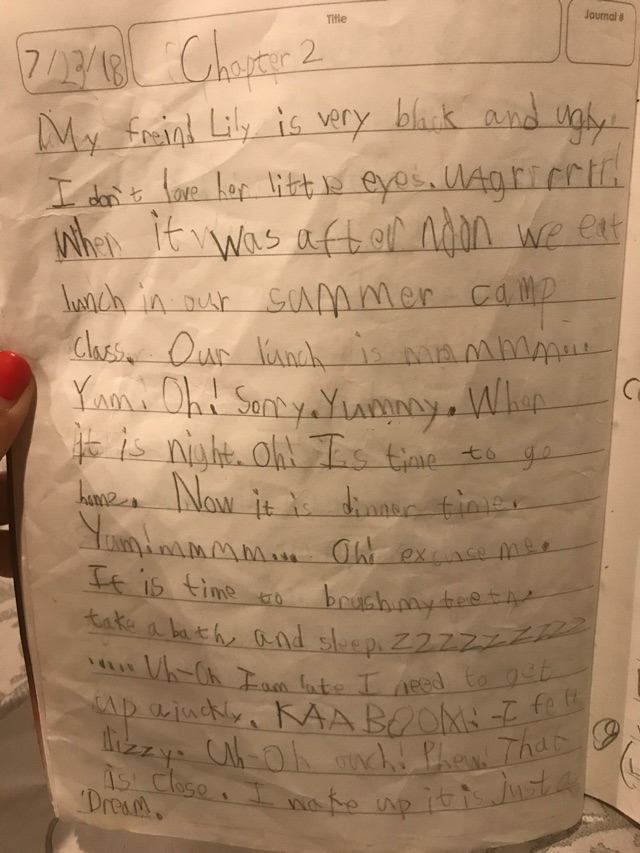 Title
Journal #
7/23/18
Chapter 2
My freind Lily is very black and ugly.
I don't love her little eyes. UAgrrrrrr!
When it was after noon we eat
lunch in our summer camp
class. Our lunch is mmmmmm...
Yum! Oh! Sorry. Yummy. When
it is night. Oh! Iss time to go
home. Now it is dinner time.
Yum!mmmm... Oh! excuse me.
It is time to brush my teeth.
take a bath, and sleep. zzzzzzzzzz
..... Uh-Oh I am late I need to get
up qiuckly. KAABOOM! I felt
dizzy. Uh-Oh ouch! Phew! That
is close. I wake up it is just a
Dream.